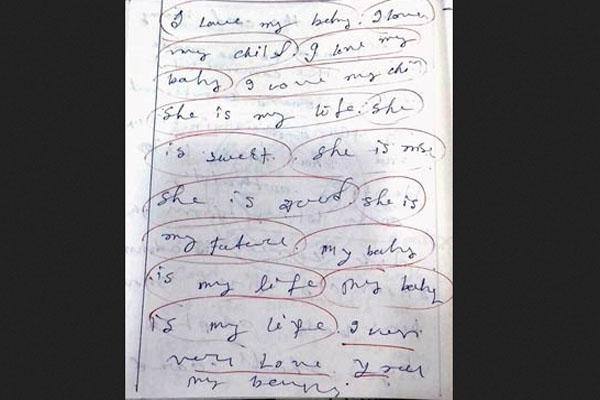 I love my baby. I love
my child. I love my
baby I love my chi
She is my life. She
is sweet. She is
She is good. She is
my future. my baby
is my life my baby
is my life. I veri
very Love you
my